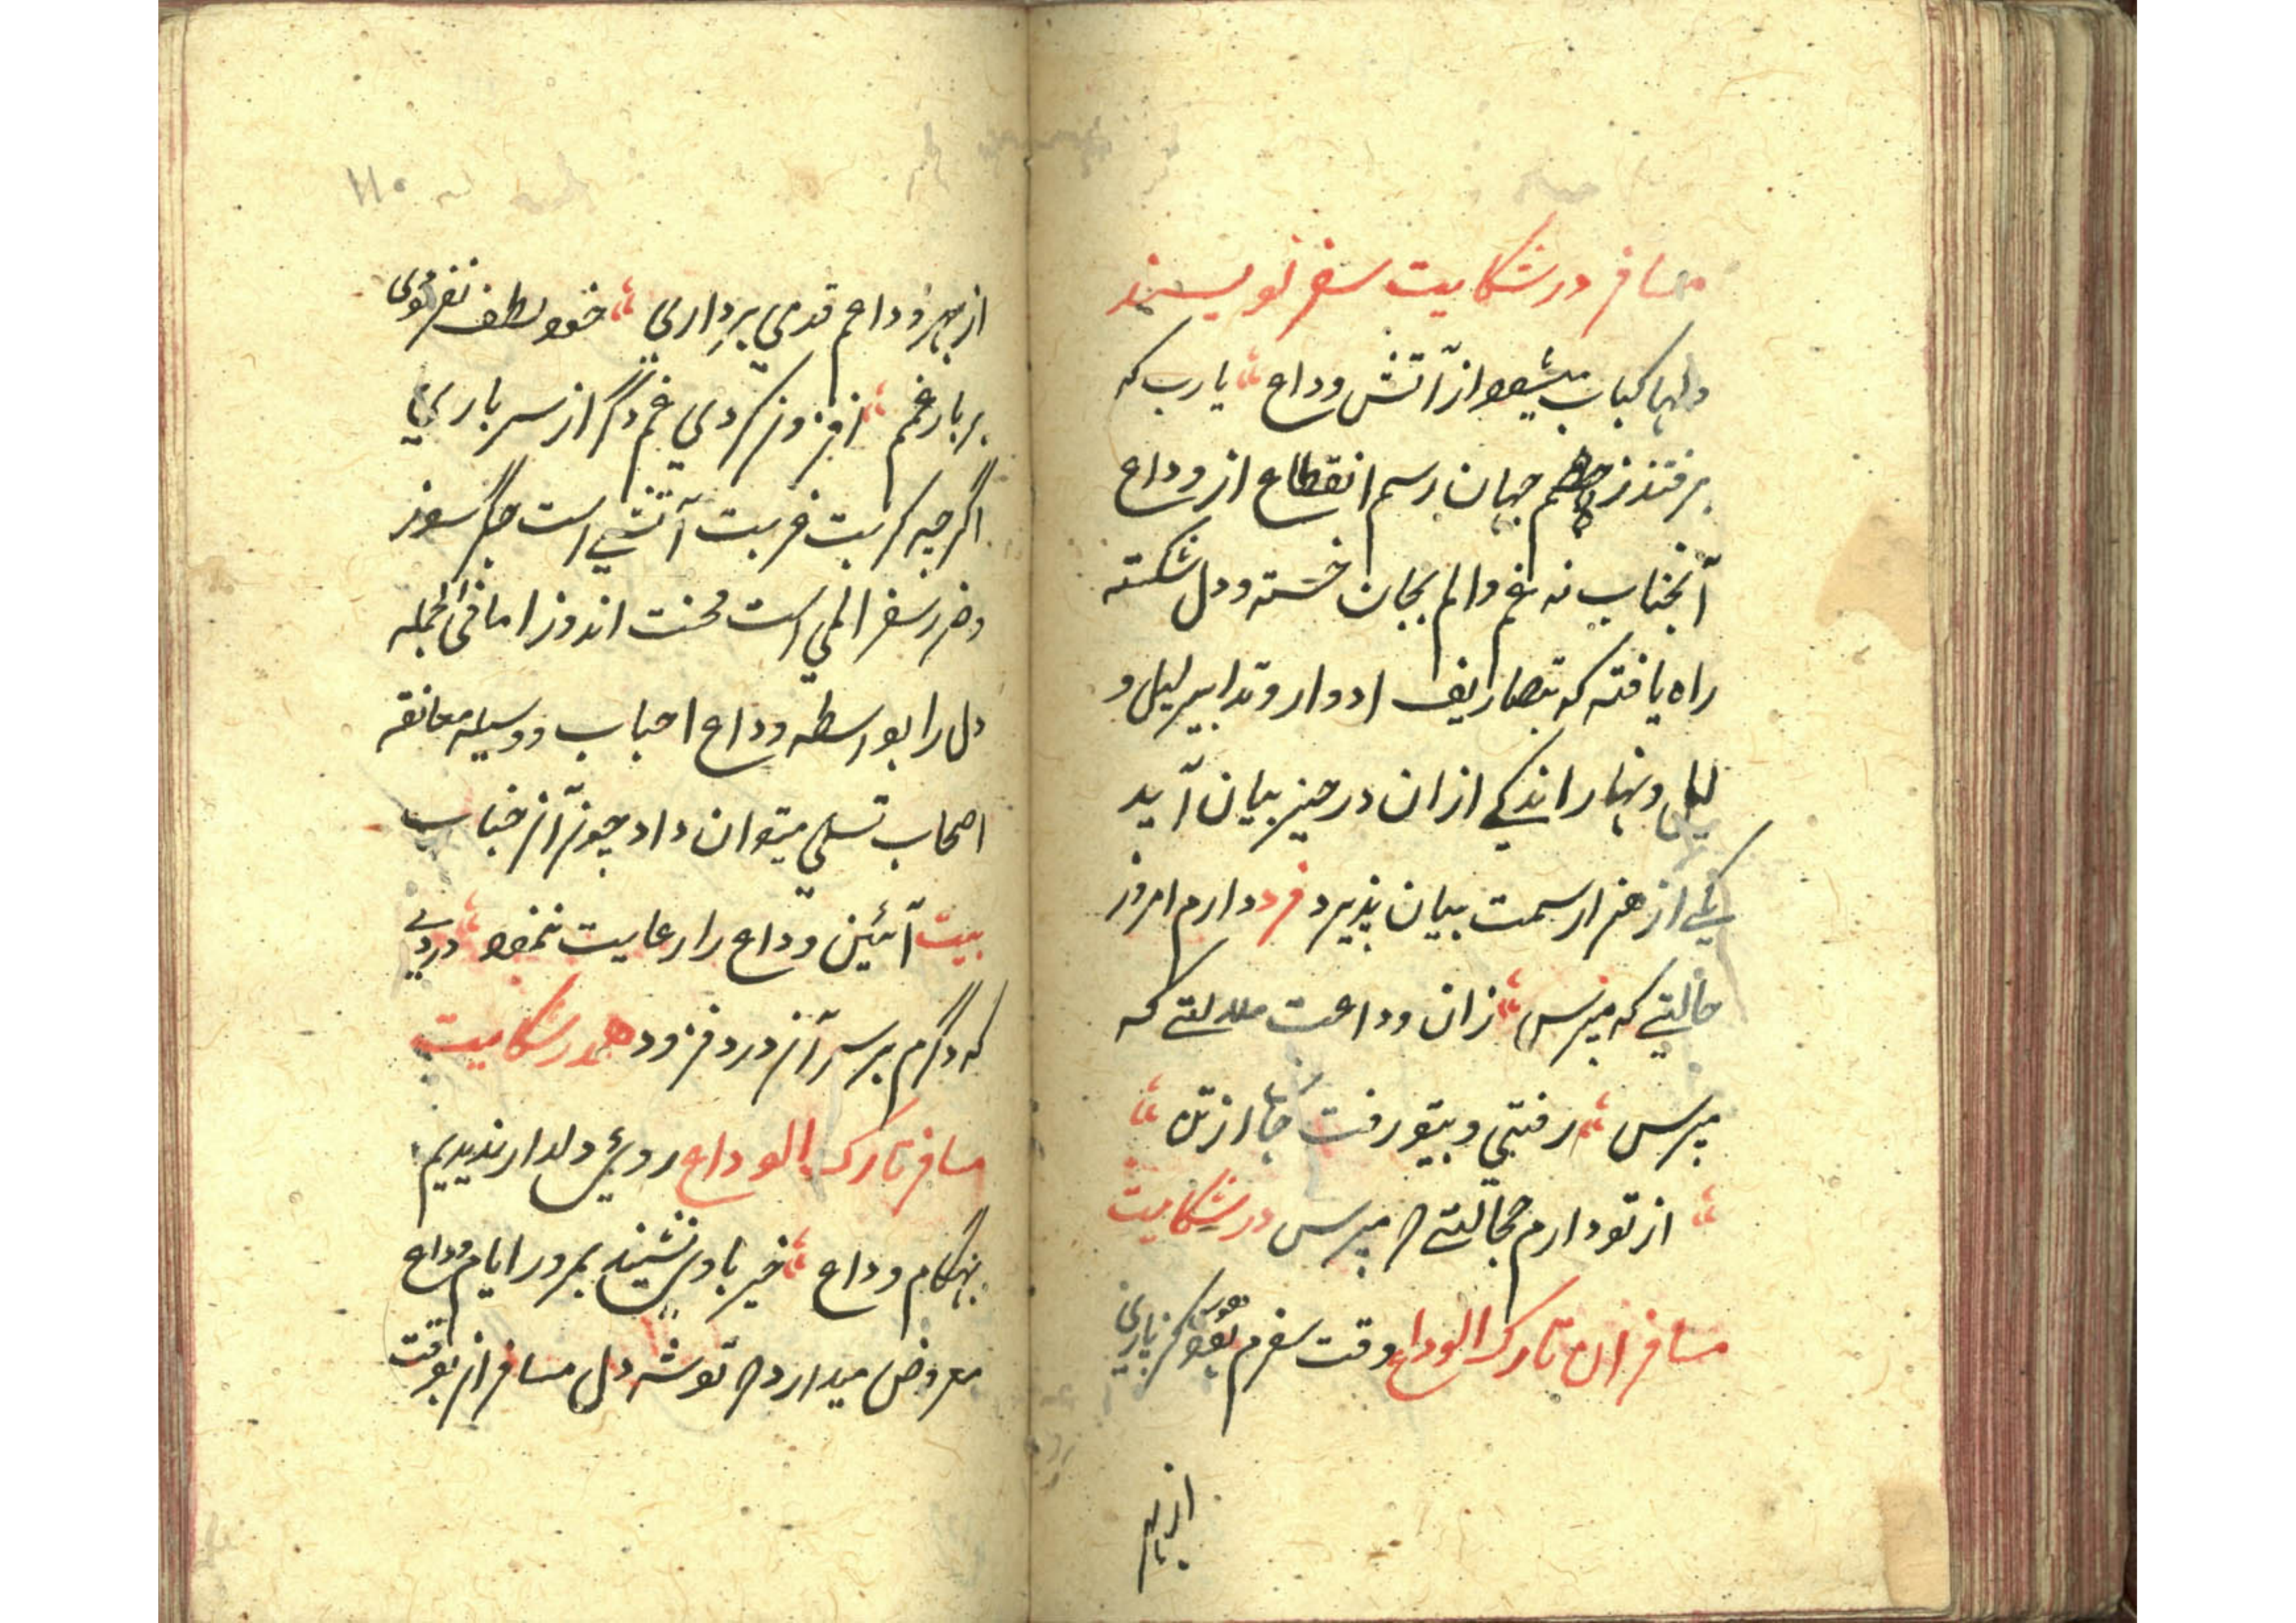 مسافر در شکایت سفر نویسند
دلها کباب میشود از آتش وداع یا رب که
برفتند ز جهان رسم انقطاع از وداع
آنجناب نه غم و الم بجان خسته و دل شکسته
راه یافته که بتصاریف ادوار و تدابیر لیل و
لیل و نهار اندکے از ان در حیز بیان آید
یکے از هزار سمت بیان پذیرد فرد دارم امروز
حالتے که مپرس زان وداعت ملالتے که
مپرس رفتی و بیتو رفت جان از تن
از تو دارم خجالتے که مپرس در شکایت
مسافران تارک الوداع وقت سفرم نبود گر یاری
از بهر
۱۱۰
از بهر وداعم قدمی برداری خود لطف نفرمودی
بر بار غمم افزون کردی غم دگر از سر باری
اگرچه کربت غربت آتشی است جگر سوز
و ضرر سفر المی است محنت اندوز اما فی الجمله
دل را بواسطه وداع احباب و وسیله معانقه
اصحاب تسلی میتوان داد چون آن جناب
بیت آئین وداع را رعایت ننمود دردی
که دگرم بر سر آن درد فزود در شکایت
مسافر تارک الوداع روی دلدار ندیدیم
بهنگام وداع خیر بادی نشنیدیم در ایام وداع
معروض میدارد که توشه دل مسافران بوقت